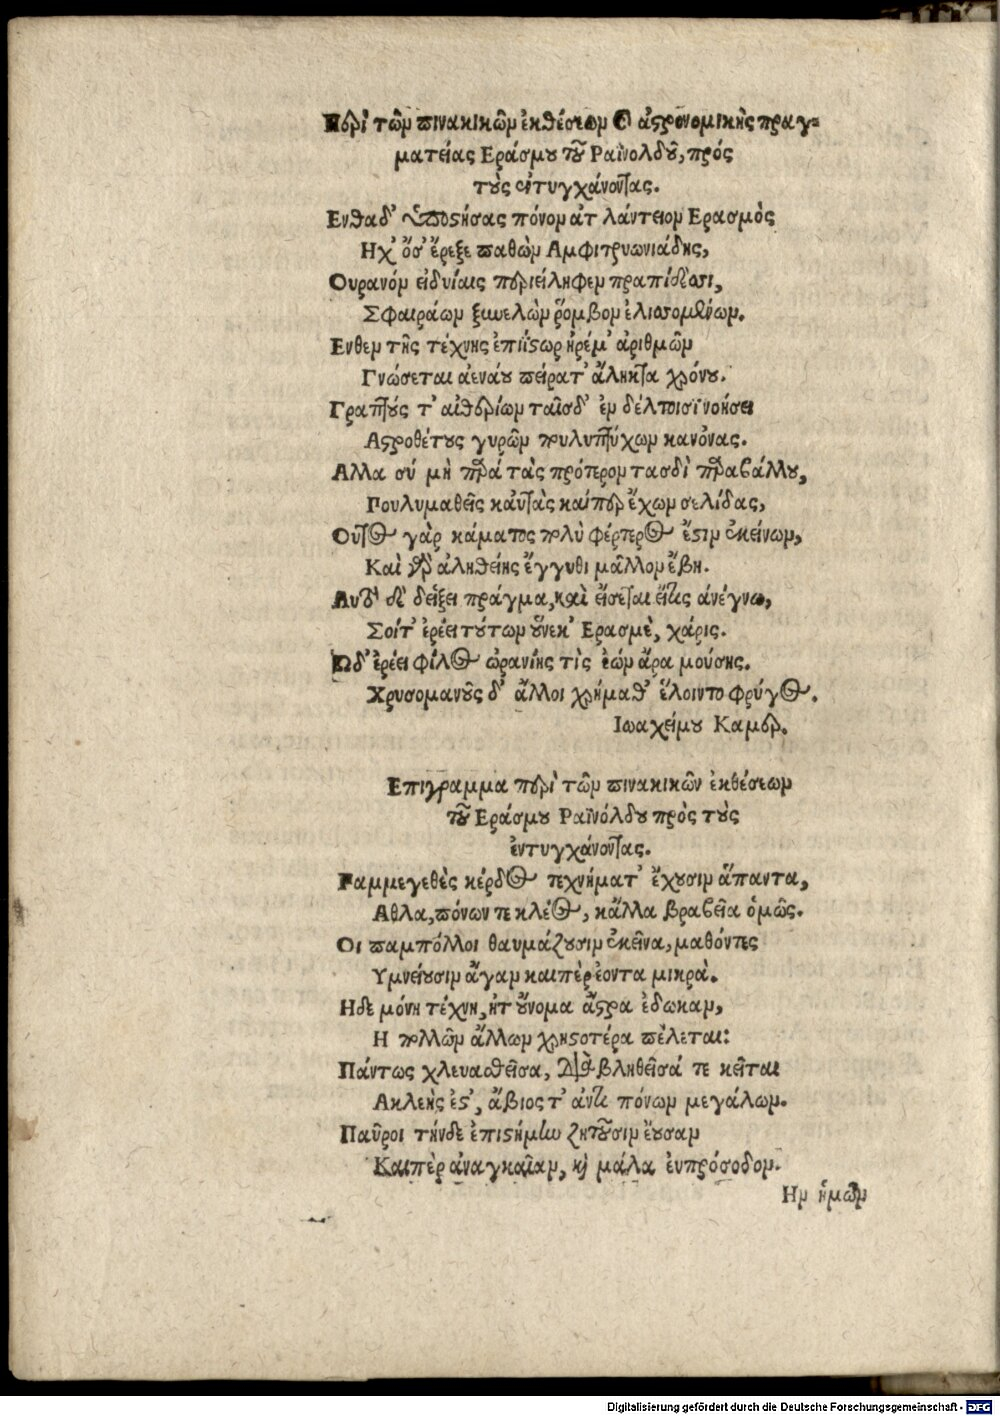 Περὶ τῶν πινακικῶν ἐκθέσεων ἀστρονομικῆς πραγ-
ματείας Εράσμου τοῦ Ραϊνολδοῦ, πρός
τοὺς ἐντυγχάνοντας.
Ενθαδ' ὑποστήσας πόνον ἀτλάντειον Ερασμὸς
Ηχ' ὅσ' ἔρεξε παθὼν Αμφιτρυωνιάδης,
Ουρανόν εἰδυίαις περιείληφεν πραπίδεσσι,
Σφαιράων ξυνελὼν ῥόμβον ἑλισσομένων.
Ενθεν τῆς τέχνης ἐπιίστωρ ἠρέμ' ἀριθμῶν
Γνώσεται ἀενάου πείρατ' ἄληκτα χρόνου.
Γραπτούς τ' αἰθερίων ταῖσδ' ἐν δέλτοισι νοήσει
Αστροθέτους γυρῶν πολυπτύχων κανόνας.
Αλλα σύ μὴ παρά τὰς πρότερον τασδὶ παραβάλλου,
Πουλυμαθεῖς καὐτὰς καίπερ ἔχων σελίδας,
Οὗτος γὰρ κάματος πολὺ φέρτερος ἔστιν ἐκείνων,
Καὶ γὰρ ἀληθείης ἔγγυθι μᾶλλον ἔβη.
Αυτὸ δὲ δείξει πρᾶγμα, καὶ εἴσεται εἴτις ἀνέγνω,
Σοί τ' ἐρέει τούτων οὕνεκ' Ερασμὲ, χάρις.
Ωδ' ἐρέει φίλος ὠρανίης τὶς ἐών ἄρα μούσης.
Χρυσομανοῦς δ' ἄλλοι χρήμαθ' ἕλοιντο φρύγος.
Ιωαχείμου Καμερ.
Επιγραμμα περὶ τῶν πινακικῶν ἐκθέσεων
τοῦ Εράσμου Ραϊνόλδου πρὸς τοὺς
ἐντυγχάνοντας.
Παμμεγεθὲς κέρδος τεχνήματ' ἔχουσιν ἅπαντα,
Αθλα, πόνων τε κλέος, κἄλλα βραβεῖα ὁμῶς.
Οι παμπόλλοι θαυμάζουσιν ἐκεῖνα, μαθόντες
Υμνείουσιν ἄγαν καιπὲρ ἐοντα μικρὰ.
Ηδε μόνη τέχνη, ᾗτ' οὔνομα ἄστρα ἐδωκαν,
Η πολλῶν ἄλλων χρηστοτέρα πέλεται:
Πάντως χλευασθεῖσα, διαβληθεῖσά τε κεῖται
Ακλεής ἐστ', ἄβιος τ' ἀντὶ πόνων μεγάλων.
Παῦροι τήνδε ἐπιστήμην ζητοῦσιν ἐοῦσαν
Καιπὲρ ἀναγκαῖαν, καὶ μάλα ἐνπρόσοδον.
Ην ἡμῶν
Digitalisierung gefördert durch die Deutsche Forschungsgemeinschaft - DFG